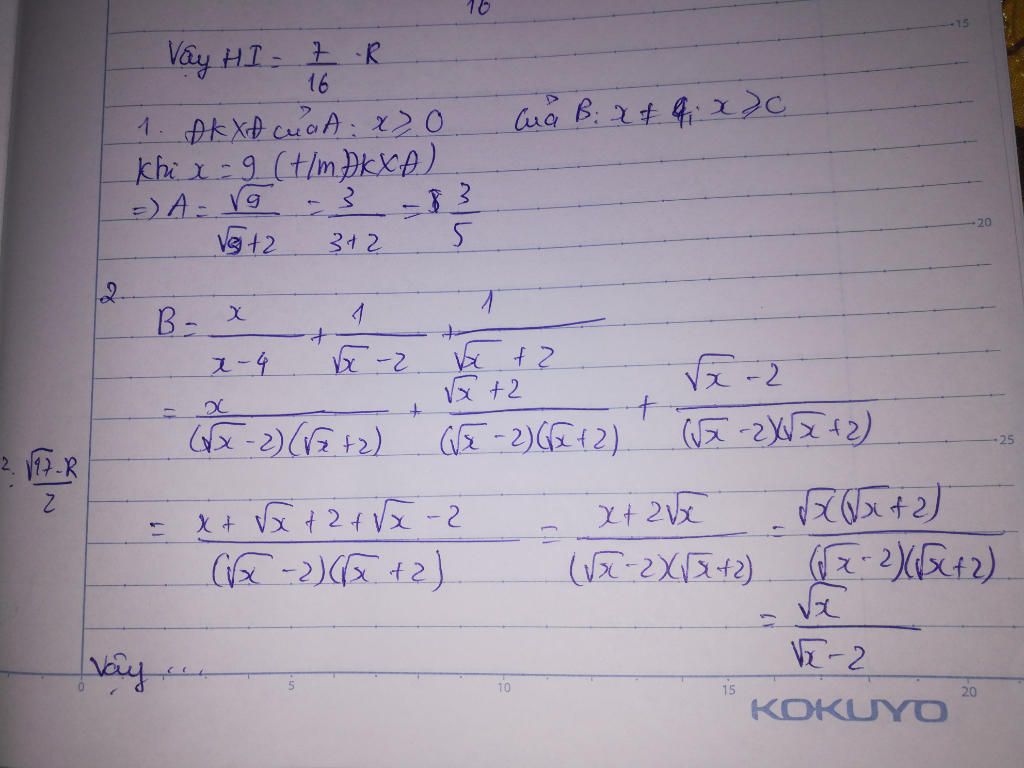 16
Vậy HI = 7/16 · R
1. ĐKXĐ của A: x ≥ 0 của B: x ≠ 4; x ≥ 0
Khi x = 9 (t/m ĐKXĐ)
=> A = √9/(√9+2) = 3/(3+2) = 3/5
2 B = x/(x-4) + 1/(√x -2) + 1/(√x +2)
= x/((√x -2)(√x +2)) + (√x +2)/((√x -2)(√x +2)) + (√x -2)/((√x -2)(√x +2))
2. √17·R/2
= (x + √x +2 + √x -2)/((√x -2)(√x +2)) = (x + 2√x)/((√x -2)(√x +2)) = √x(√x +2)/((√x -2)(√x +2))
= √x/(√x -2)
Vậy ...
15
20
25
0 5 10 15 20
KOKUYO